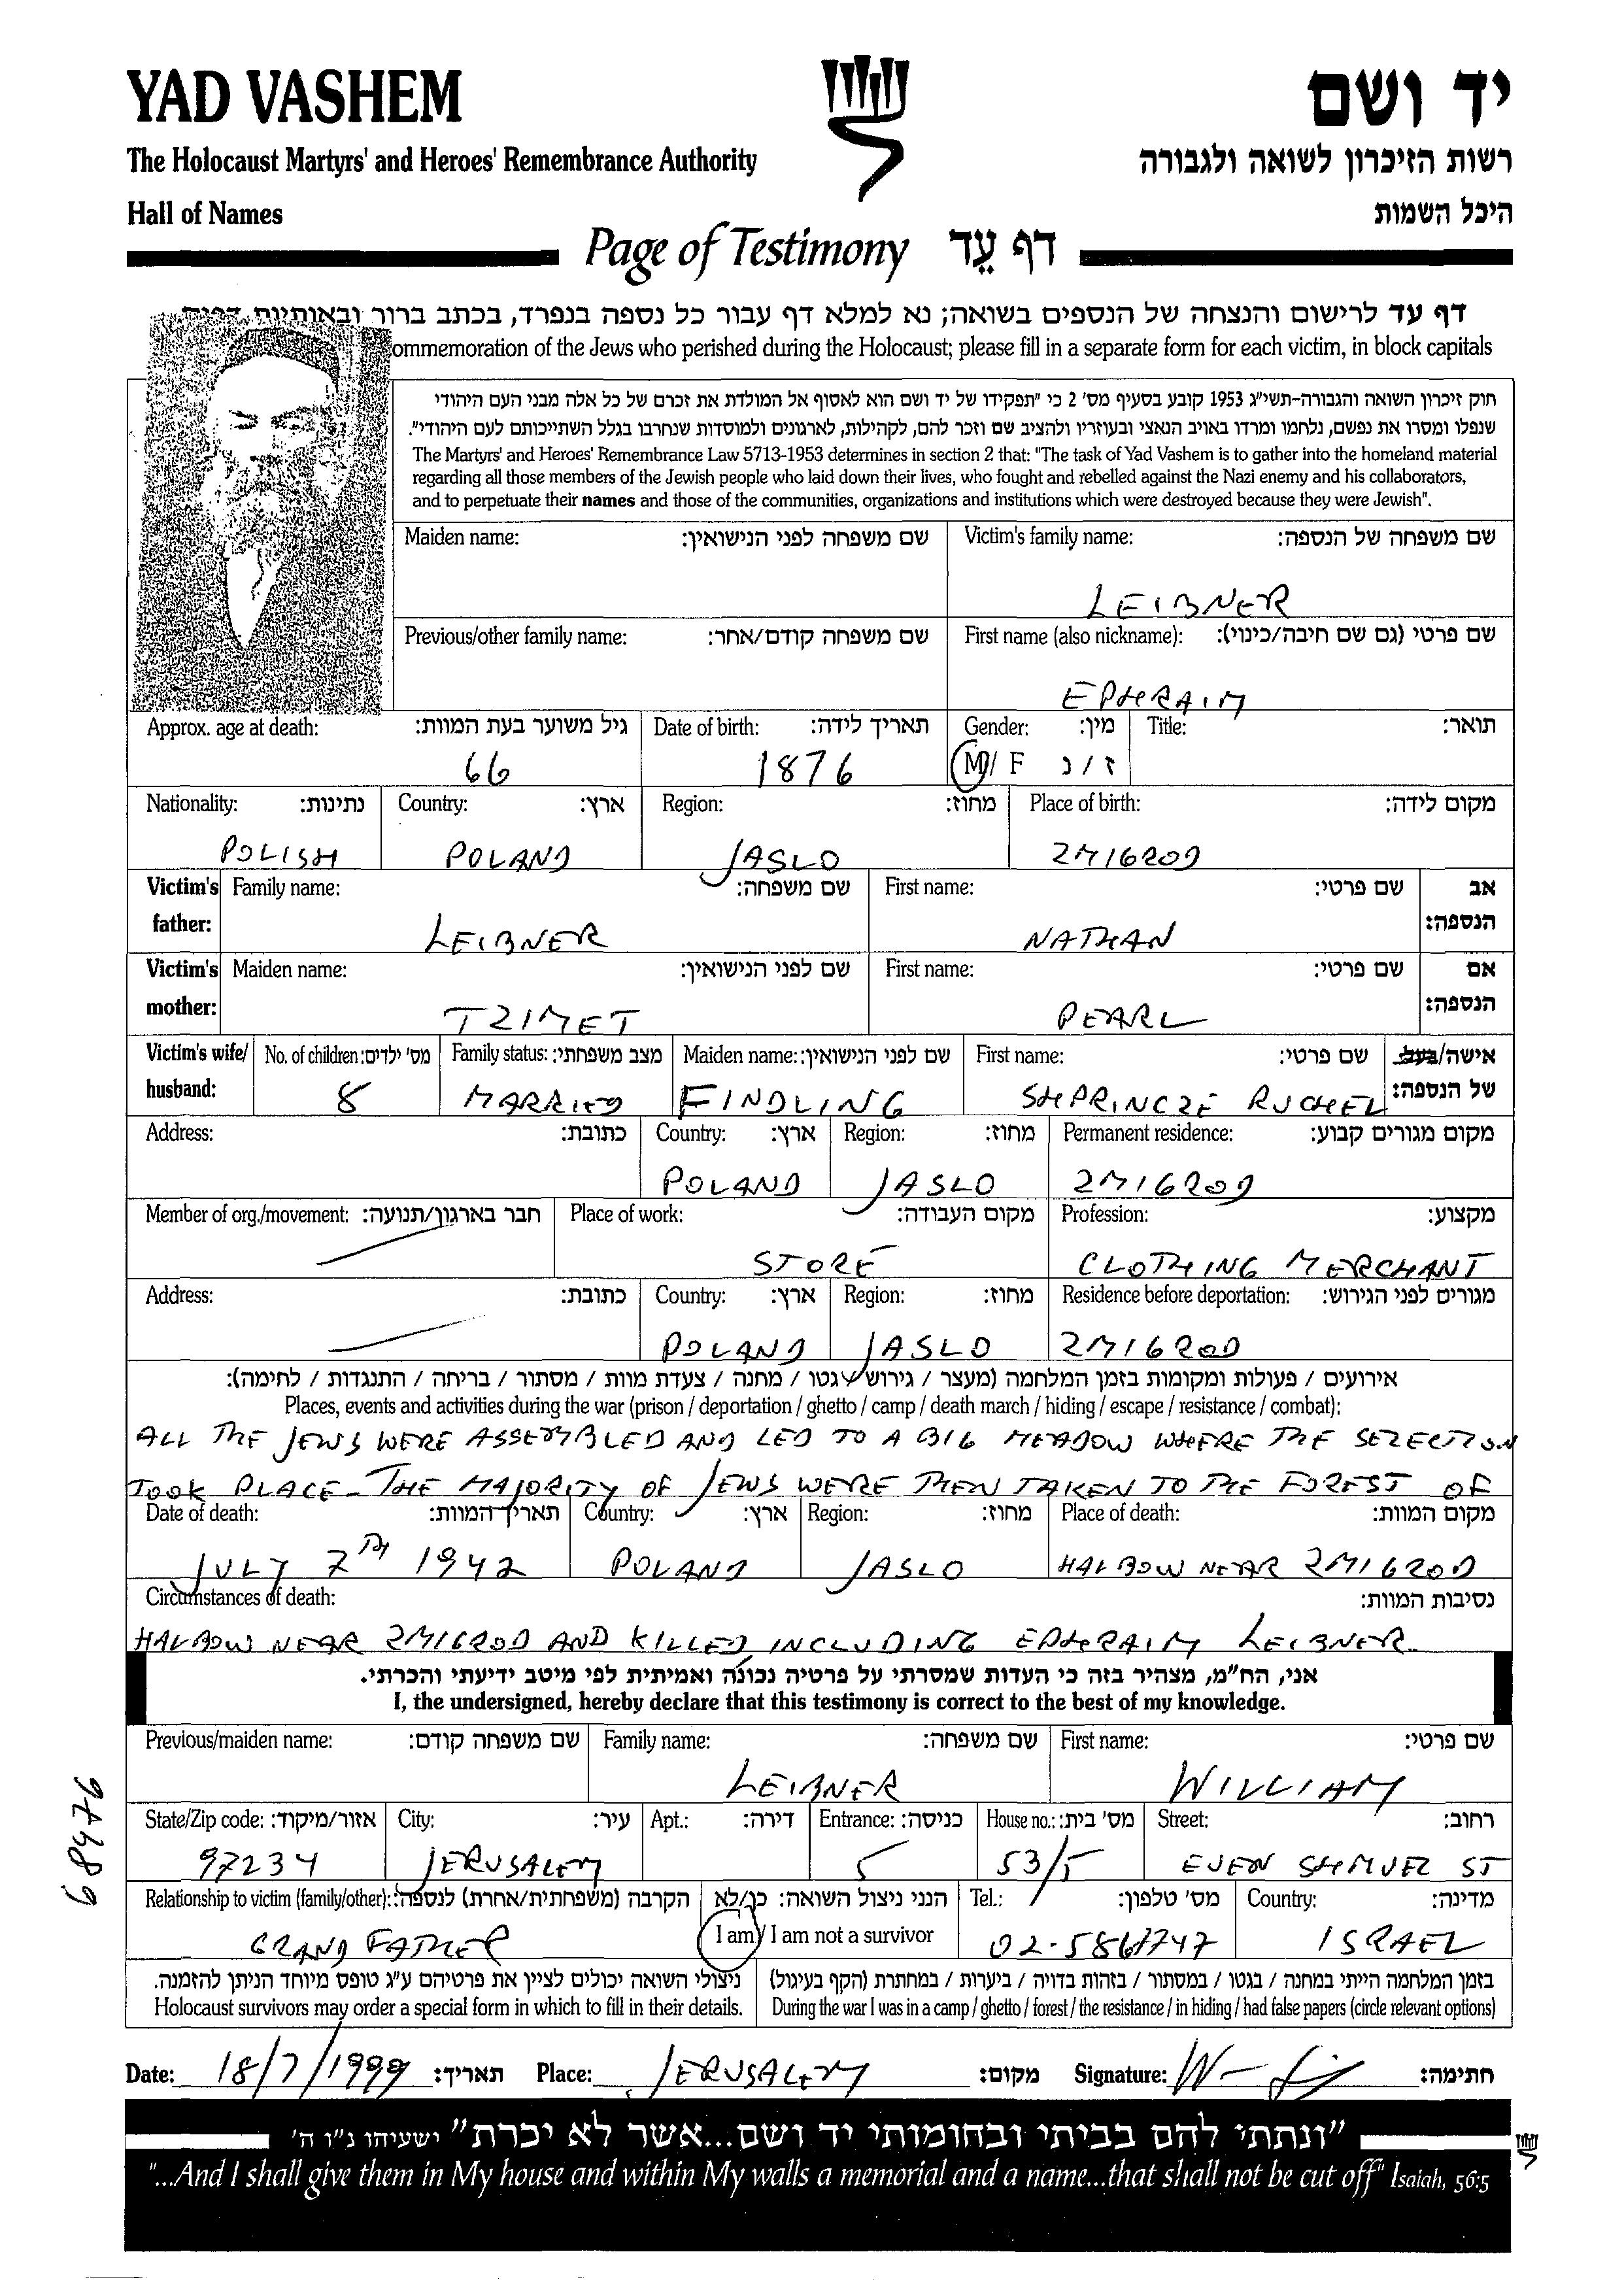 YAD VASHEM
יד ושם
The Holocaust Martyrs' and Heroes' Remembrance Authority
רשות הזיכרון לשואה ולגבורה
Hall of Names
היכל השמות
Page of Testimony דף עֵד
דף עד לרישום והנצחה של הנספים בשואה; נא למלא דף עבור כל נספה בנפרד, בכתב ברור ובאותיות דפוס
ommemoration of the Jews who perished during the Holocaust; please fill in a separate form for each victim, in block capitals
חוק זיכרון השואה והגבורה-תשי"ג 1953 קובע בסעיף מס' 2 כי "תפקידו של יד ושם הוא לאסוף אל המולדת את זכרם של כל אלה מבני העם היהודי
שנפלו ומסרו את נפשם, נלחמו ומרדו באויב הנאצי ובעוזריו ולהציב שם וזכר להם, לקהילות, לארגונים ולמוסדות שנחרבו בגלל השתייכותם לעם היהודי".
The Martyrs' and Heroes' Remembrance Law 5713-1953 determines in section 2 that: "The task of Yad Vashem is to gather into the homeland material
regarding all those members of the Jewish people who laid down their lives, who fought and rebelled against the Nazi enemy and his collaborators,
and to perpetuate their names and those of the communities, organizations and institutions which were destroyed because they were Jewish".
Maiden name: שם משפחה לפני הנישואין: Victim's family name: שם משפחה של הנספה:
LEIBNER
Previous/other family name: שם משפחה קודם/אחר: First name (also nickname): שם פרטי (גם שם חיבה/כינוי):
EPHRAIM
Approx. age at death: גיל משוער בעת המוות: Date of birth: תאריך לידה: Gender: מין: Title: תואר:
66 1876 M/ F ז / נ
Nationality: נתינות: Country: ארץ: Region: מחוז: Place of birth: מקום לידה:
POLISH POLAND JASLO ZMIGROD
Victim's Family name: שם משפחה: First name: שם פרטי: אב
father: LEIBNER NATHAN הנספה:
Victim's Maiden name: שם לפני הנישואין: First name: שם פרטי: אם
mother: TZIMET PEARL הנספה:
Victim's wife/ No. of children: מס' ילדים: Family status: מצב משפחתי: Maiden name: שם לפני הנישואין: First name: שם פרטי: אישה/בעל
husband: 8 MARRIED FINDLING SHPRINCZE RUCHEL של הנספה:
Address: כתובת: Country: ארץ: Region: מחוז: Permanent residence: מקום מגורים קבוע:
POLAND JASLO ZMIGROD
Member of org./movement: חבר בארגון/תנועה: Place of work: מקום העבודה: Profession: מקצוע:
STORE CLOTHING MERCHANT
Address: כתובת: Country: ארץ: Region: מחוז: Residence before deportation: מגורים לפני הגירוש:
POLAND JASLO ZMIGROD
אירועים / פעולות ומקומות בזמן המלחמה (מעצר / גירוש / גטו / מחנה / צעדת מוות / מסתור / בריחה / התנגדות / לחימה):
Places, events and activities during the war (prison / deportation / ghetto / camp / death march / hiding / escape / resistance / combat):
ALL THE JEWS WERE ASSEMBLED AND LED TO A BIG MEADOW WHERE THE SELECTION
TOOK PLACE - THE MAJORITY OF JEWS WERE THEN TAKEN TO THE FOREST OF
Date of death: תאריך המוות: Country: ארץ: Region: מחוז: Place of death: מקום המוות:
JULY 7TH 1942 POLAND JASLO HALBOW NEAR ZMIGROD
Circumstances of death: נסיבות המוות:
HALBOW NEAR ZMIGROD AND KILLED, INCLUDING EPHRAIM LEIBNER
אני, הח"מ, מצהיר בזה כי העדות שמסרתי על פרטיה נכונה ואמיתית לפי מיטב ידיעתי והכרתי.
I, the undersigned, hereby declare that this testimony is correct to the best of my knowledge.
Previous/maiden name: שם משפחה קודם: Family name: שם משפחה: First name: שם פרטי:
LEIBNER WILLIAM
State/Zip code: אזור/מיקוד: City: עיר: Apt.: דירה: Entrance: כניסה: House no.: מס' בית: Street: רחוב:
97234 JERUSALEM 5 53/5 EVEN SHMUEL ST
Relationship to victim (family/other): הקרבה (משפחתית/אחרת) לנספה: הנני ניצול השואה: כן/לא Tel.: מס' טלפון: Country: מדינה:
GRAND FATHER I am / I am not a survivor 02-5867747 ISRAEL
ניצולי השואה יכולים לציין את פרטיהם ע"ג טופס מיוחד הניתן להזמנה. בזמן המלחמה הייתי במחנה / בגטו / במסתור / בזהות בדויה / ביערות / במחתרת (הקף בעיגול)
Holocaust survivors may order a special form in which to fill in their details. During the war I was in a camp / ghetto / forest / the resistance / in hiding / had false papers (circle relevant options)
Date: 18/7/1999 תאריך: Place: JERUSALEM מקום: Signature: חתימה:
"ונתתי להם בביתי ובחומותי יד ושם...אשר לא יכרת" ישעיהו נ"ו ה'
"...And I shall give them in My house and within My walls a memorial and a name...that shall not be cut off" Isaiah, 56:5
68476